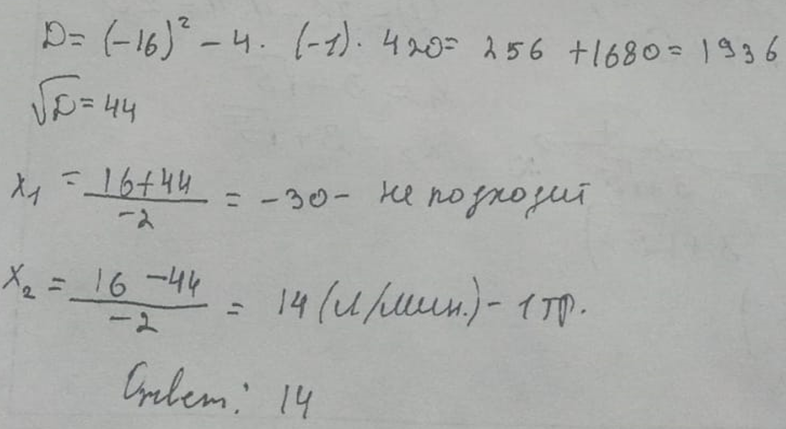 D = (-16)² - 4 · (-1) · 420 = 256 + 1680 = 1936
√D = 44
x₁ = (16+44)/(-2) = -30 - не подходит
x₂ = (16-44)/(-2) = 14 (л/мин.) - 1 тр.
Ответ: 14